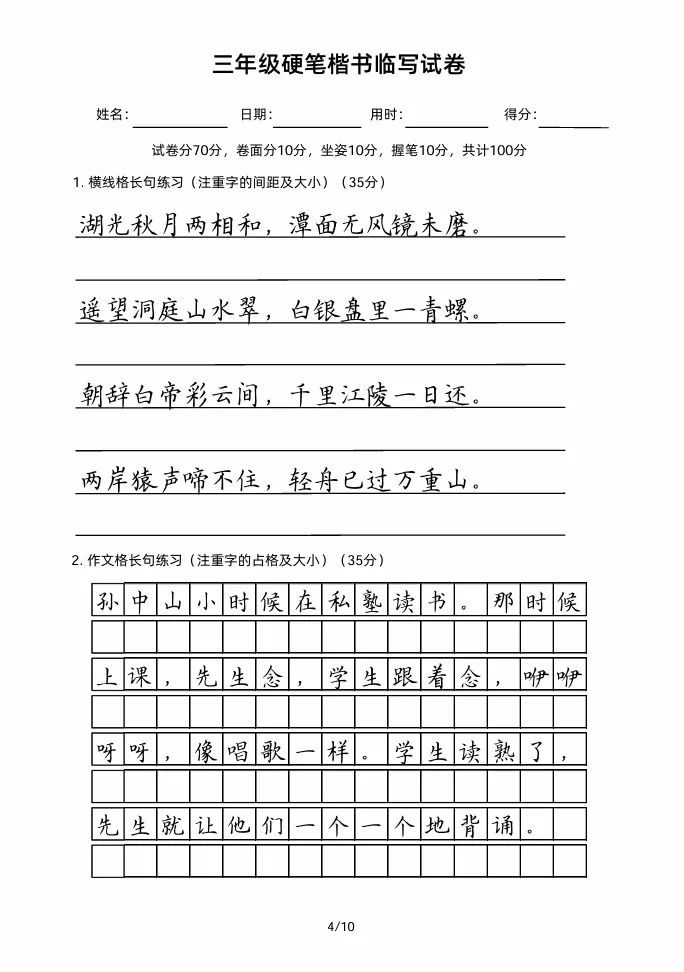 三年级硬笔楷书临写试卷
姓名: 日期: 用时: 得分:
试卷分70分，卷面分10分，坐姿10分，握笔10分，共计100分
1. 横线格长句练习（注重字的间距及大小）（35分）
湖光秋月两相和，潭面无风镜未磨。
遥望洞庭山水翠，白银盘里一青螺。
朝辞白帝彩云间，千里江陵一日还。
两岸猿声啼不住，轻舟已过万重山。
2. 作文格长句练习（注重字的占格及大小）（35分）
孙中山小时候在私塾读书。那时候
上课，先生念，学生跟着念，咿咿
呀呀，像唱歌一样。学生读熟了，
先生就让他们一个一个地背诵。
4/10